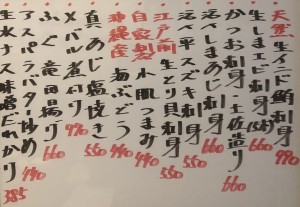 天然 生インド鮪刺身 990
生しまエビ刺身(5本) 660
かつお刺身・土佐造り 660
活〆しまあじ刺身 660
活〆平スズキ刺身 550
江戸前 生とり貝刺身 550
自家製 水肌つまみ 440
沖縄産 海ぶどう 440
真あじ塩焼き 550
メバル煮付り 770
ふぐ竜田揚げ 660
アスパラバター炒め 440
生水ナス味噌だれかり 385